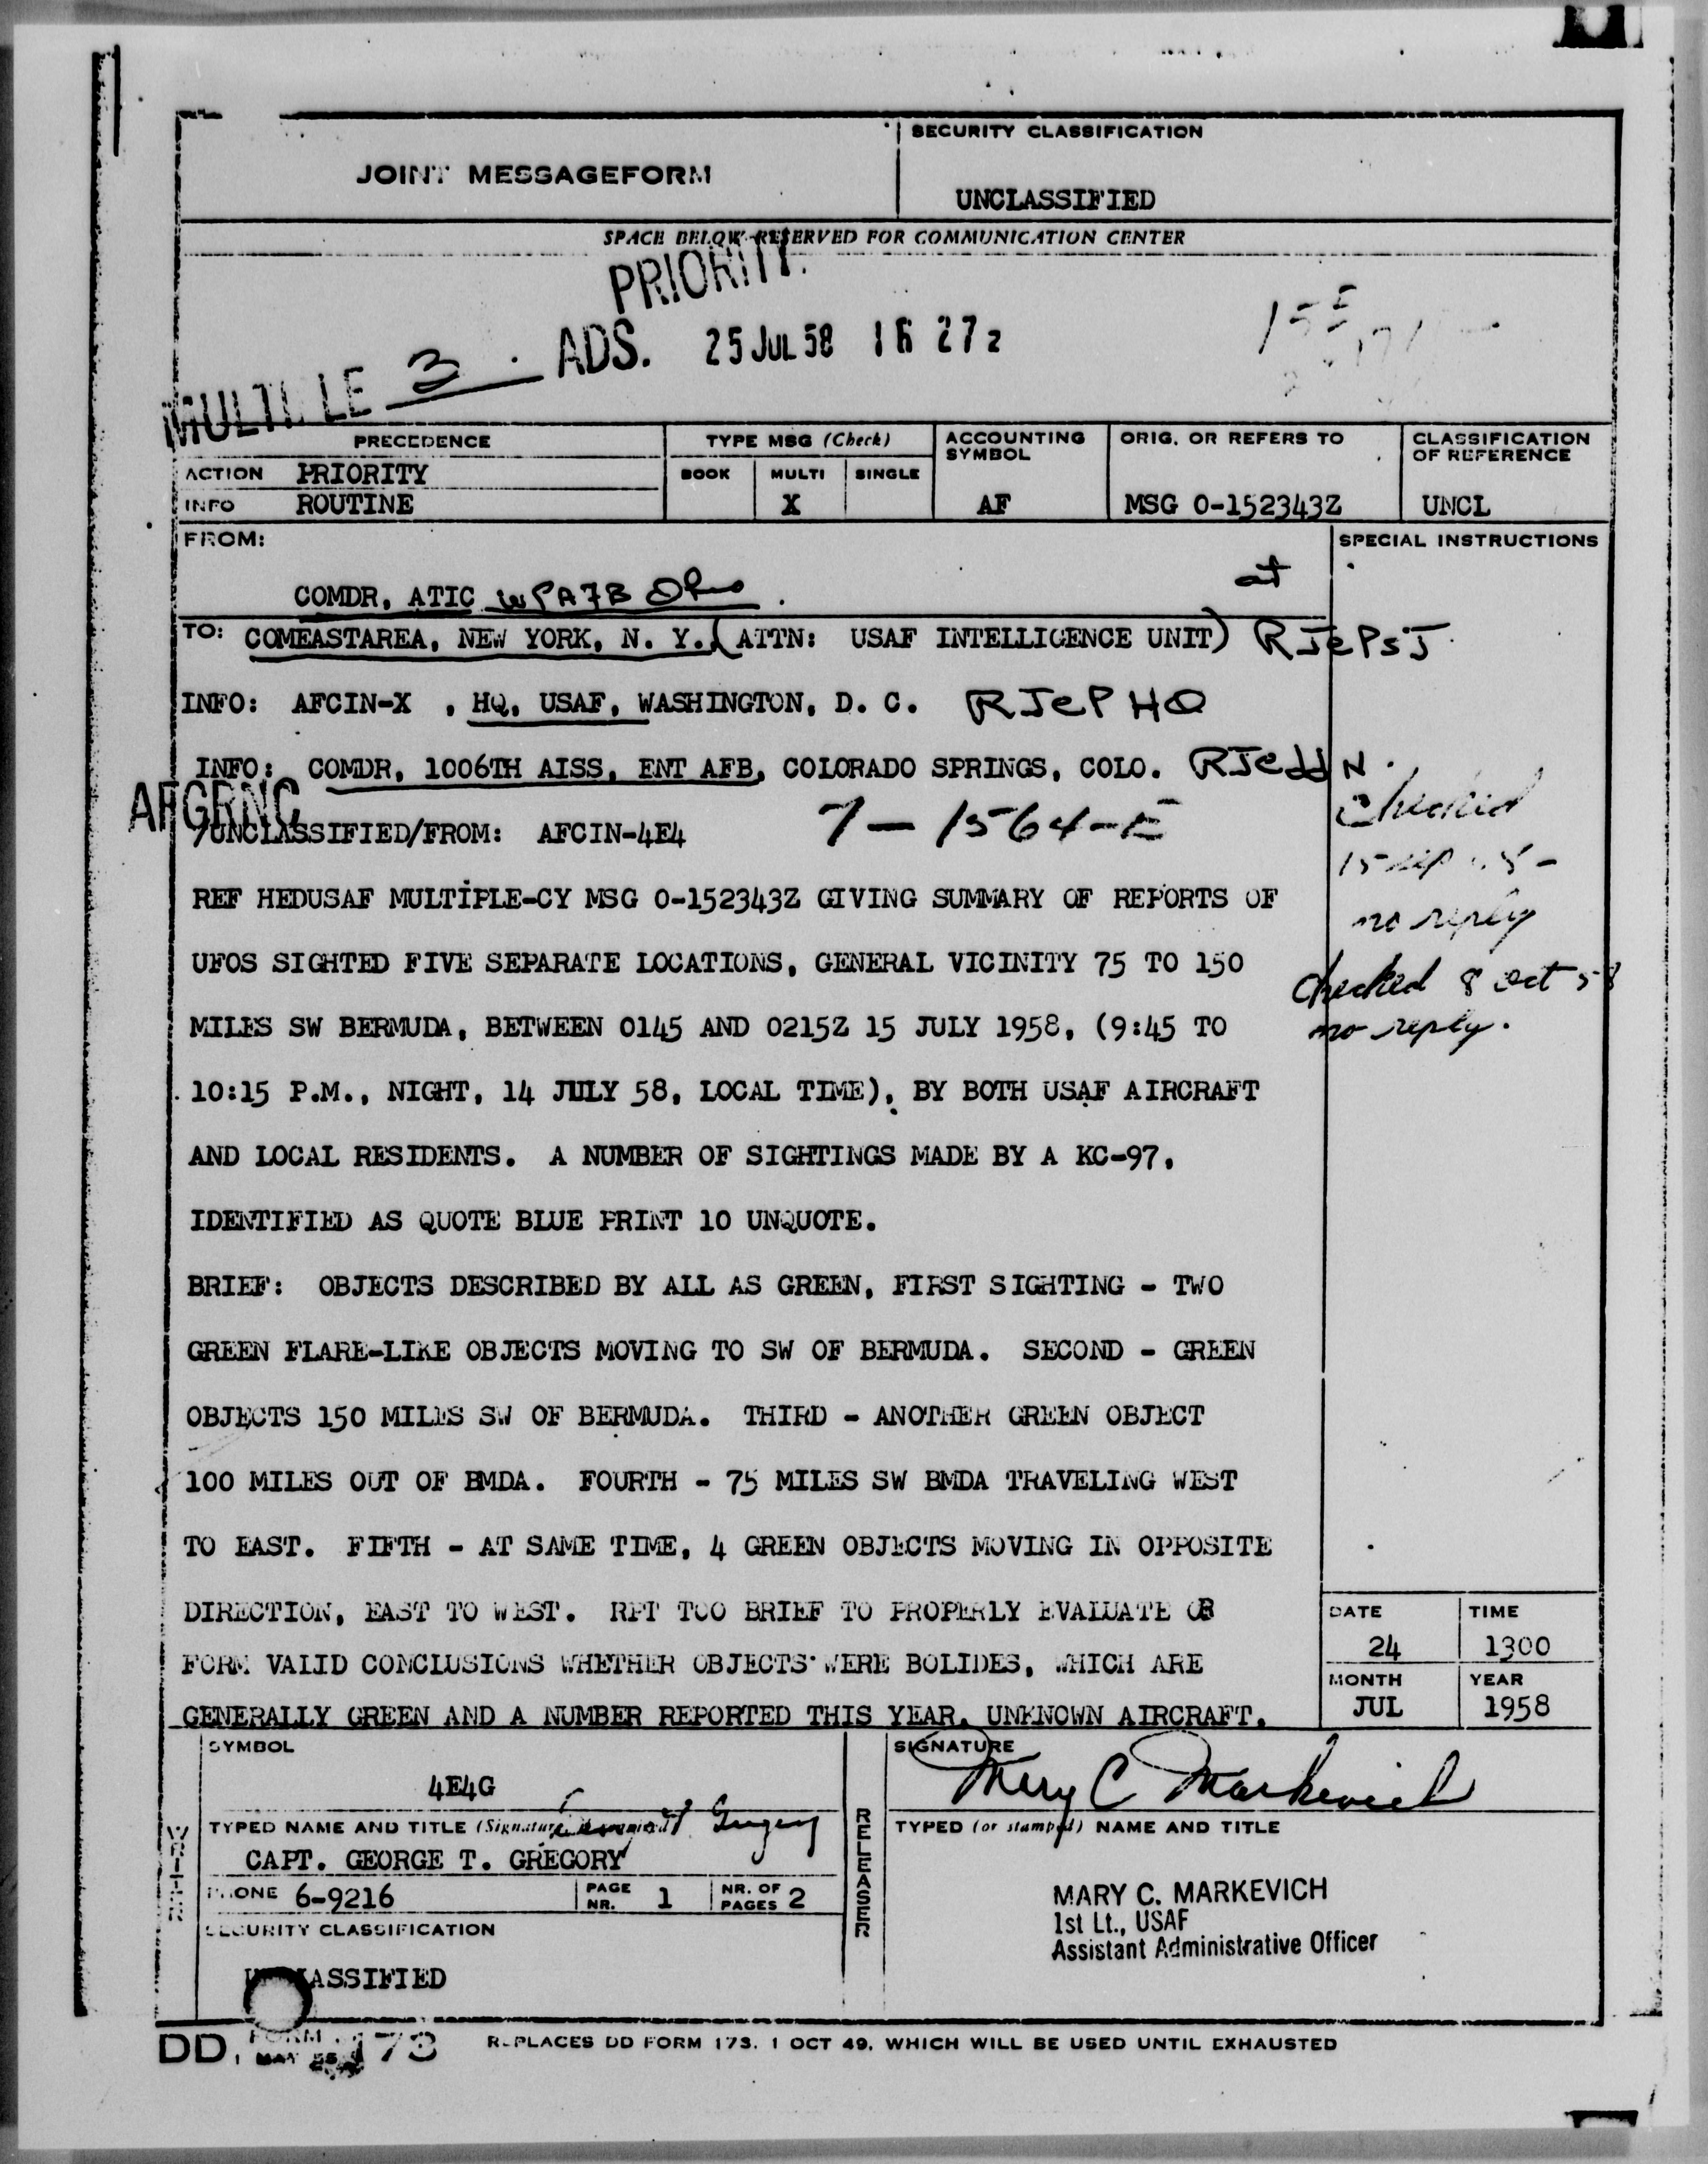 JOINT MESSAGEFORM
SECURITY CLASSIFICATION
UNCLASSIFIED
SPACE BELOW RESERVED FOR COMMUNICATION CENTER
PRIORITY
3 ADS. 25 JUL 58 16 27z
PRECEDENCE
TYPE MSG (Check)
ACCOUNTING SYMBOL
ORIG. OR REFERS TO
CLASSIFICATION OF REFERENCE
ACTION PRIORITY
BOOK MULTI SINGLE
INFO ROUTINE
X
AF
MSG 0-152343Z
UNCL
FROM:
SPECIAL INSTRUCTIONS
COMDR, ATIC WPAFB Ohio
at
TO: COMEASTAREA, NEW YORK, N. Y. (ATTN: USAF INTELLIGENCE UNIT) RJePSJ
INFO: AFCIN-X , HQ, USAF, WASHINGTON, D. C. RJeP HQ
INFO: COMDR, 1006TH AISS, ENT AFB, COLORADO SPRINGS, COLO. RJeddN
AFGRNC
/UNCLASSIFIED/FROM: AFCIN-4E4 7-1564-E
checked
15 Sep
no reply
checked 8 Oct 58
no reply.
REF HEDUSAF MULTIPLE-CY MSG 0-152343Z GIVING SUMMARY OF REPORTS OF
UFOS SIGHTED FIVE SEPARATE LOCATIONS, GENERAL VICINITY 75 TO 150
MILES SW BERMUDA, BETWEEN 0145 AND 0215Z 15 JULY 1958, (9:45 TO
10:15 P.M., NIGHT, 14 JULY 58, LOCAL TIME), BY BOTH USAF AIRCRAFT
AND LOCAL RESIDENTS. A NUMBER OF SIGHTINGS MADE BY A KC-97,
IDENTIFIED AS QUOTE BLUE PRINT 10 UNQUOTE.
BRIEF: OBJECTS DESCRIBED BY ALL AS GREEN, FIRST SIGHTING - TWO
GREEN FLARE-LIKE OBJECTS MOVING TO SW OF BERMUDA. SECOND - GREEN
OBJECTS 150 MILES SW OF BERMUDA. THIRD - ANOTHER GREEN OBJECT
100 MILES OUT OF BMDA. FOURTH - 75 MILES SW BMDA TRAVELING WEST
TO EAST. FIFTH - AT SAME TIME, 4 GREEN OBJECTS MOVING IN OPPOSITE
DIRECTION, EAST TO WEST. RPT TOO BRIEF TO PROPERLY EVALUATE OR
FORM VALID CONCLUSIONS WHETHER OBJECTS WERE BOLIDES, WHICH ARE
GENERALLY GREEN AND A NUMBER REPORTED THIS YEAR, UNKNOWN AIRCRAFT,
DATE
TIME
24
1300
MONTH
YEAR
JUL
1958
SYMBOL
4E4G
WRITER
TYPED NAME AND TITLE (Signature,
CAPT. GEORGE T. GREGORY
PHONE 6-9216
PAGE NR. 1
NR. OF PAGES 2
SECURITY CLASSIFICATION
UNCLASSIFIED
RELEASER
SIGNATURE
Mary C Markevich
TYPED (or stamped) NAME AND TITLE
MARY C. MARKEVICH
1st Lt., USAF
Assistant Administrative Officer
DD, FORM 173
REPLACES DD FORM 173, 1 OCT 49, WHICH WILL BE USED UNTIL EXHAUSTED